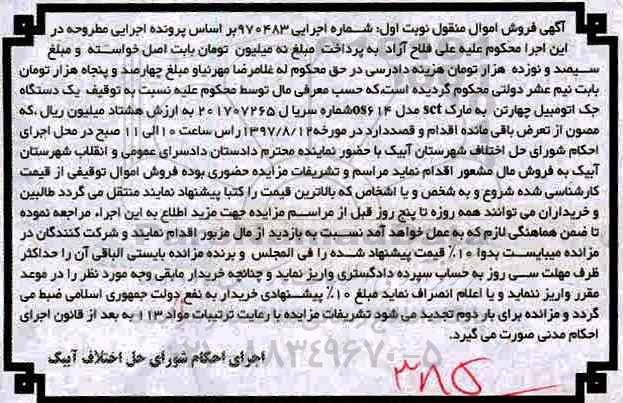 آگهی فروش اموال منقول نوبت اول: شماره اجرایی ۹۷۰۴۸۳بر اساس پرونده اجرایی مطروحه در
این اجرا محکوم علیه علی فلاح آزاد به پرداخت مبلغ نه میلیون تومان بابت اصل خواسته و مبلغ
سیصد و نوزده هزار تومان هزینه دادرسی در حق محکوم له غلامرضا مهرنیاو مبلغ چهارصد و پنجاه هزار تومان
بابت نیم عشر دولتی محکوم گردیده است،که حسب معرفی مال توسط محکوم علیه نسبت به توقیف یک دستگاه
جک اتومبیل چهارتن به مارک sct مدل os۶۱۴شماره سریا ل ۲۰۱۷۰۷۲۶۵ به ارزش هشتاد میلیون ریال ،که
مصون از تعرض باقی مانده اقدام و قصددارد در مورخه۱۳۹۷/۸/۱۲راس ساعت ۱۰الی ۱۱ صبح در محل اجرای
احکام شورای حل اختلاف شهرستان آبیک با حضور نماینده محترم دادستان دادسرای عمومی و انقلاب شهرستان
آبیک به فروش مال مشعور اقدام نماید مراسم و تشریفات مزایده حضوری بوده فروش اموال توقیفی از قیمت
کارشناسی شده شروع و به شخص و یا اشخاص که بالاترین قیمت را کتبا پیشنهاد نمایند منتقل می گردد طالبین
و خریداران می توانند همه روزه تا پنج روز قبل از مراسم مزایده جهت مزید اطلاع به این اجراء مراجعه نموده
تا ضمن هماهنگی لازم که به عمل خواهد آمد نسبت به بازدید از مال مزبور اقدام نمایند و شرکت کنندگان در
مزائده میبایست بدوا ۱۰٪ قیمت پیشنهاد شده را فی المجلس و برنده مزایده بایستی الباقی آن را حداکثر
ظرف مهلت سی روز به حساب سپرده دادگستری واریز نماید و چنانچه خریدار مابقی وجه مورد نظر را در موعد
مقرر واریز ننماید و یا اعلام انصراف نماید مبلغ ۱۰٪ پیشنهادی خریدار به نفع دولت جمهوری اسلامی ضبط می
گردد و مزایده برای بار دوم تجدید می شود تشریفات مزایده با رعایت ترتیبات مواد ۱۱۳ به بعد از قانون اجرای
احکام مدنی صورت می گیرد.
اجرای احکام شورای حل اختلاف آبیک
۸۸۳۴۹۶۷۰-۵
۳۸۵